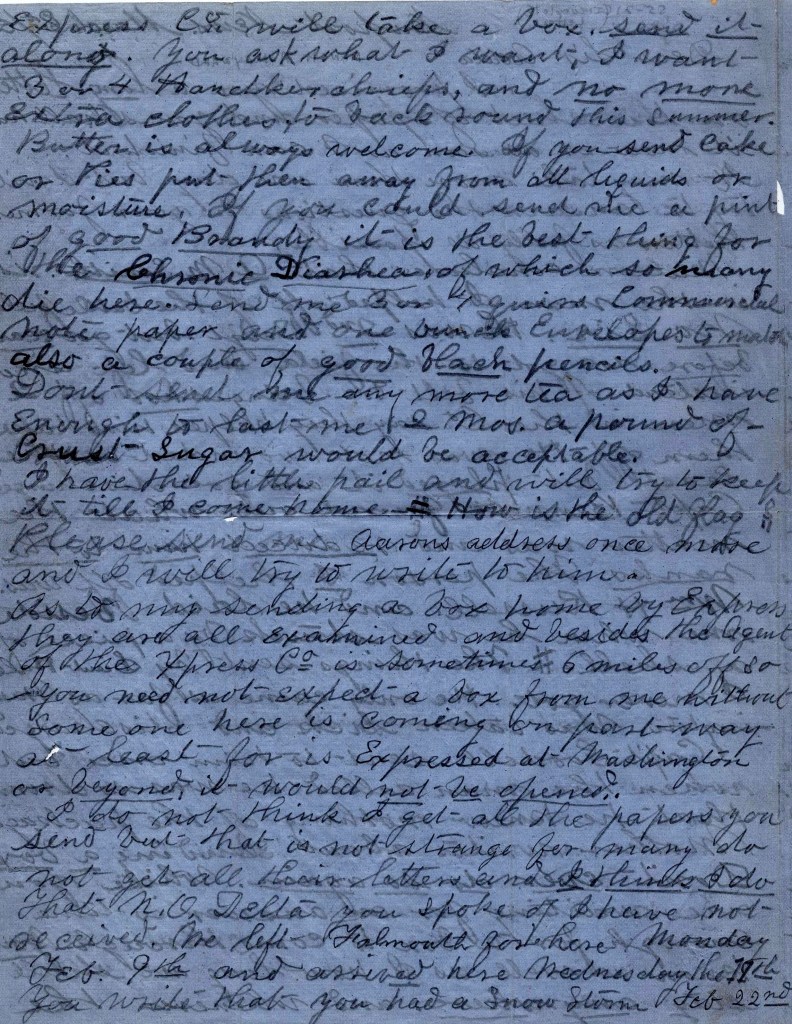 Express Co. will take a box. send it
along. You ask what I want, I want
3 or 4 Handkerchiefs, and no more
Extra clothes, to back round this summer.
Butter is always welcome. If you send Cake
or Pies put then away from all liquids or
moisture, If you could send me a pint
of good Brandy it is the best thing for
the Chronic Diarhea, of which so many
die here. Send me 3 or 4 quires Commercial
note paper and one bunch Envelopes to match
also a couple of good black pencils.
Dont send me any more tea as I have
Enough to last me 2 Mos. a pound of
Crust Sugar would be acceptable.
I have the little pail and will try to keep
it till I come home = How is the old flag
Please send me Aarons address once more
and I will try to write to him.
As to my sending a box home by Express
they are all examined and besides the Agent
of the Xpress Co is sometimes 6 miles off so
you need not expect a box from me without
Some one here is comeng on part way
at least for is Expressed at Washington
or beyond it would not be opened.
I do not think I get all the papers you
send but that is not strange for many do
not get all their letters and I think I do
That N.O. Delta you spoke of I have not
received. We left Falmouth for here Monday
Feb. 9th and arrived here Wednesday the 11th
You write that you had a Snow Storm Feb 22nd